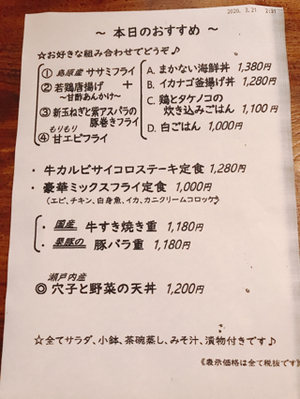 2020. 3.21 2:31
～ 本日のおすすめ ～
☆お好きな組み合わせでどうぞ♪
① 島原産 ササミフライ
② 若鶏唐揚げ
～甘酢あんかけ～
③ 新玉ねぎと紫アスパラの
豚巻きフライ
もりもり
④ 甘エビフライ
＋
A. まかない海鮮丼 1,380円
B. イカナゴ釜揚げ丼 1,280円
C. 鶏とタケノコの
炊き込みごはん 1,100円
D. 白ごはん 1,000円
・ 牛カルビサイコロステーキ定食 1,280円
・ 豪華ミックスフライ定食 1,000円
（エビ、チキン、白身魚、イカ、カニクリームコロッケ）
・ 国産 牛すき焼き重 1,180円
・ 栗豚の 豚バラ重 1,180円
瀬戸内産
◎ 穴子と野菜の天丼 1,200円
☆全てサラダ、小鉢、茶碗蒸し、みそ汁、漬物付きです♪
《表示価格は全て税抜です》